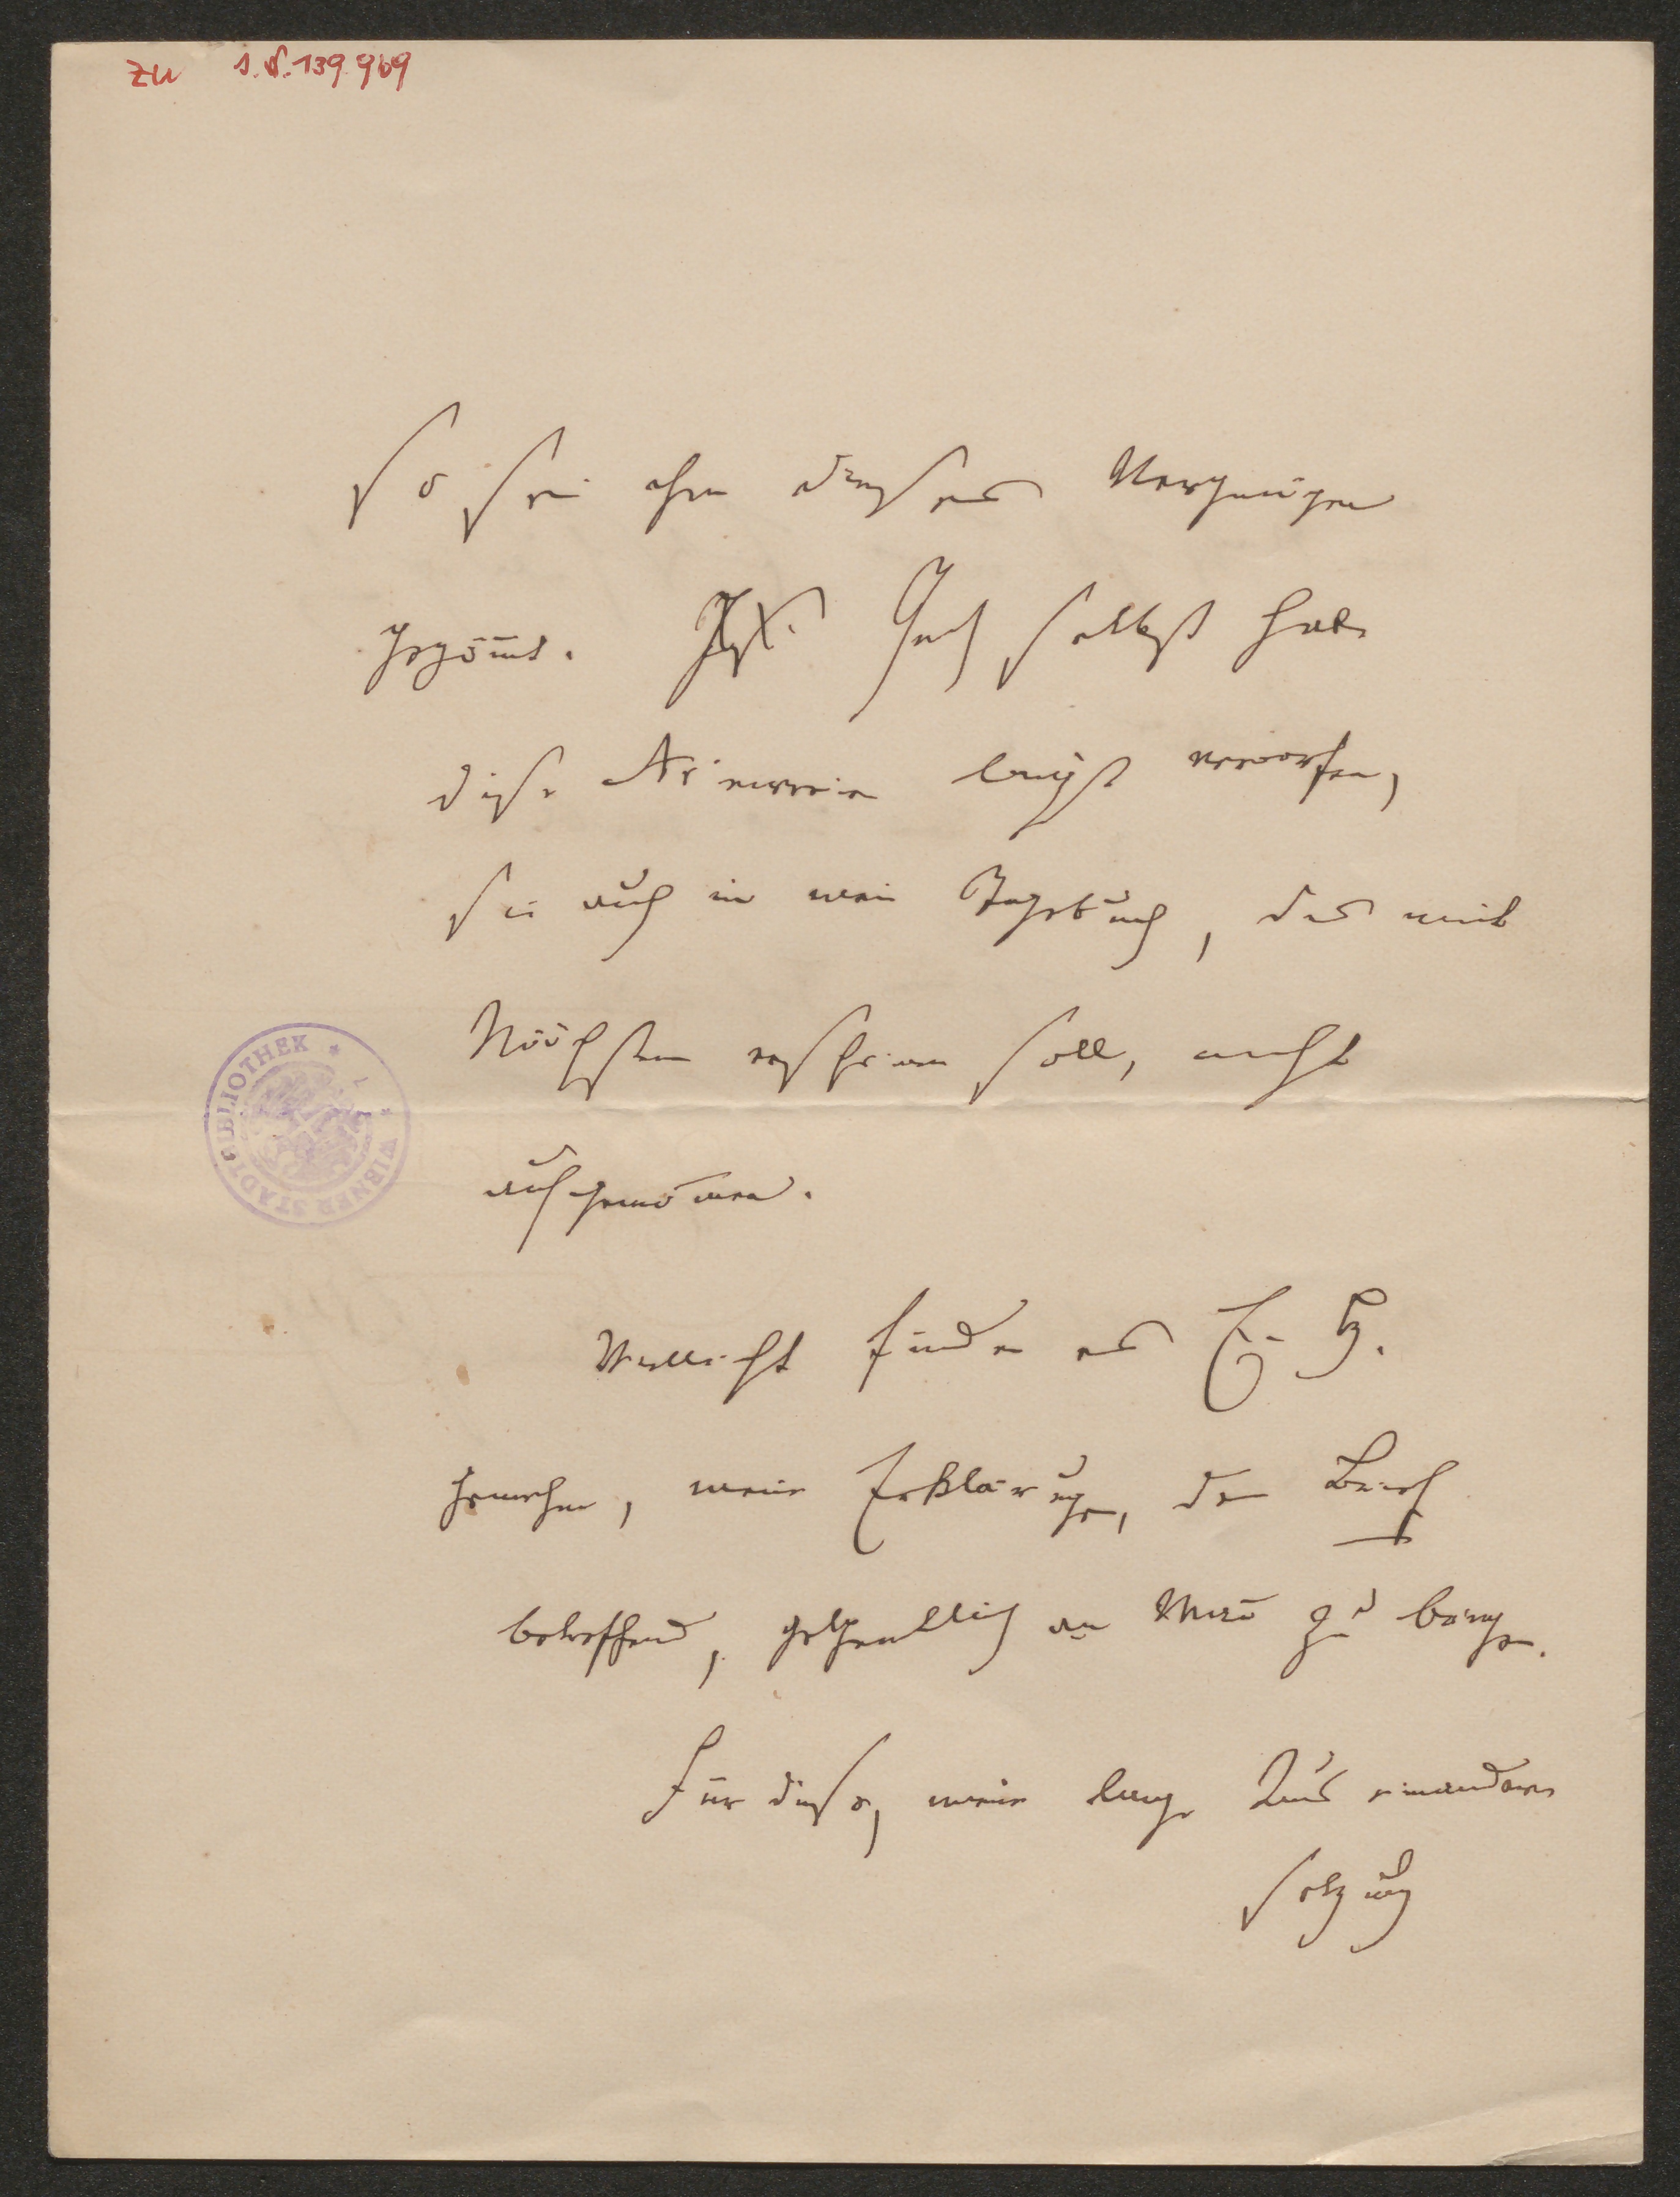 zu I.N. 139.969
so sei ihm dieses Vergnügen
gegönnt. Ich selbst habe
diese längst verworfen,
sie auch in mein Tagebuch, das mit
Nächstem erscheinen soll, nicht
aufgenom̄en.
Vielleicht finden es E. H.
genehm, meine Erklärungen, den Brief
betreffend, gelegentlich an Mann zu bringen.
Für diese, meine lange Auseinander
setzung
WIENER STADTBIBLIOTHEK